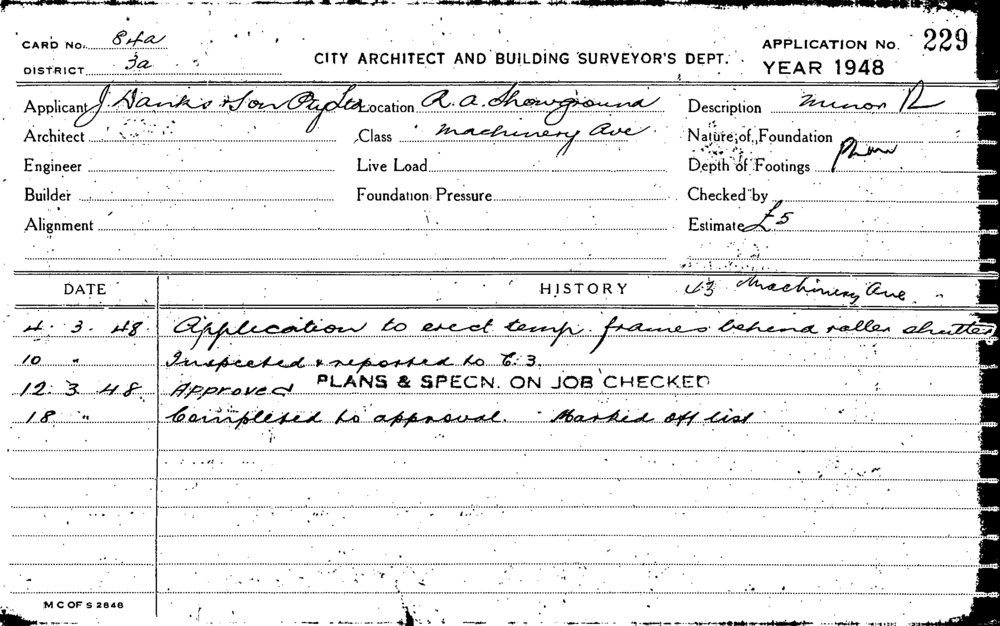 CARD No. 84a
DISTRICT 3a
CITY ARCHITECT AND BUILDING SURVEYOR'S DEPT.
APPLICATION No. 229
YEAR 1948
Applicant J. Danks & Son Pty Ltd Location R. A. Showground Description Minor
Architect Class Machinery Ave Nature of Foundation
Engineer Live Load Depth of Footings
Builder Foundation Pressure Checked by
Alignment Estimate £5
DATE HISTORY Machinery Ave
4. 3. 48. Application to erect temp. frames behind roller shutter
10 " Inspected & reported to
12. 3. 48. Approved PLANS & SPECN. ON JOB CHECKED
18 " Completed to approval. Marked off list
M C OF S 2848